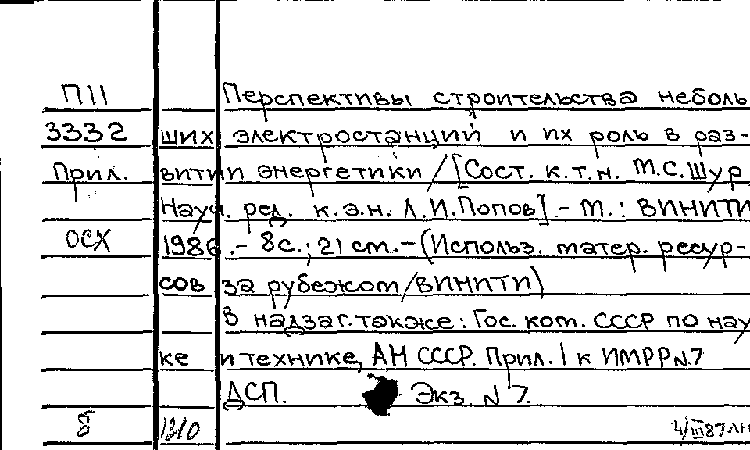 П11 Перспективы строительства неболь
3332 ших электростанций и их роль в раз-
Прил. витии энергетики /[Сост. к.т.н. М.С.Шур
Науч. ред. к.э.н. А.И.Попов] - М.: ВИНИТИ
ОСХ 1986.- 8с.; 21 см.-(Использ. матер. ресур-
сов за рубежом/ВИНИТИ)
В надзаг.также: Гос. ком. СССР по нау
ке и технике, АН СССР. Прил. 1 к ИМРР №7
ДСП. Экз. № 7.
8 1310 4/III87